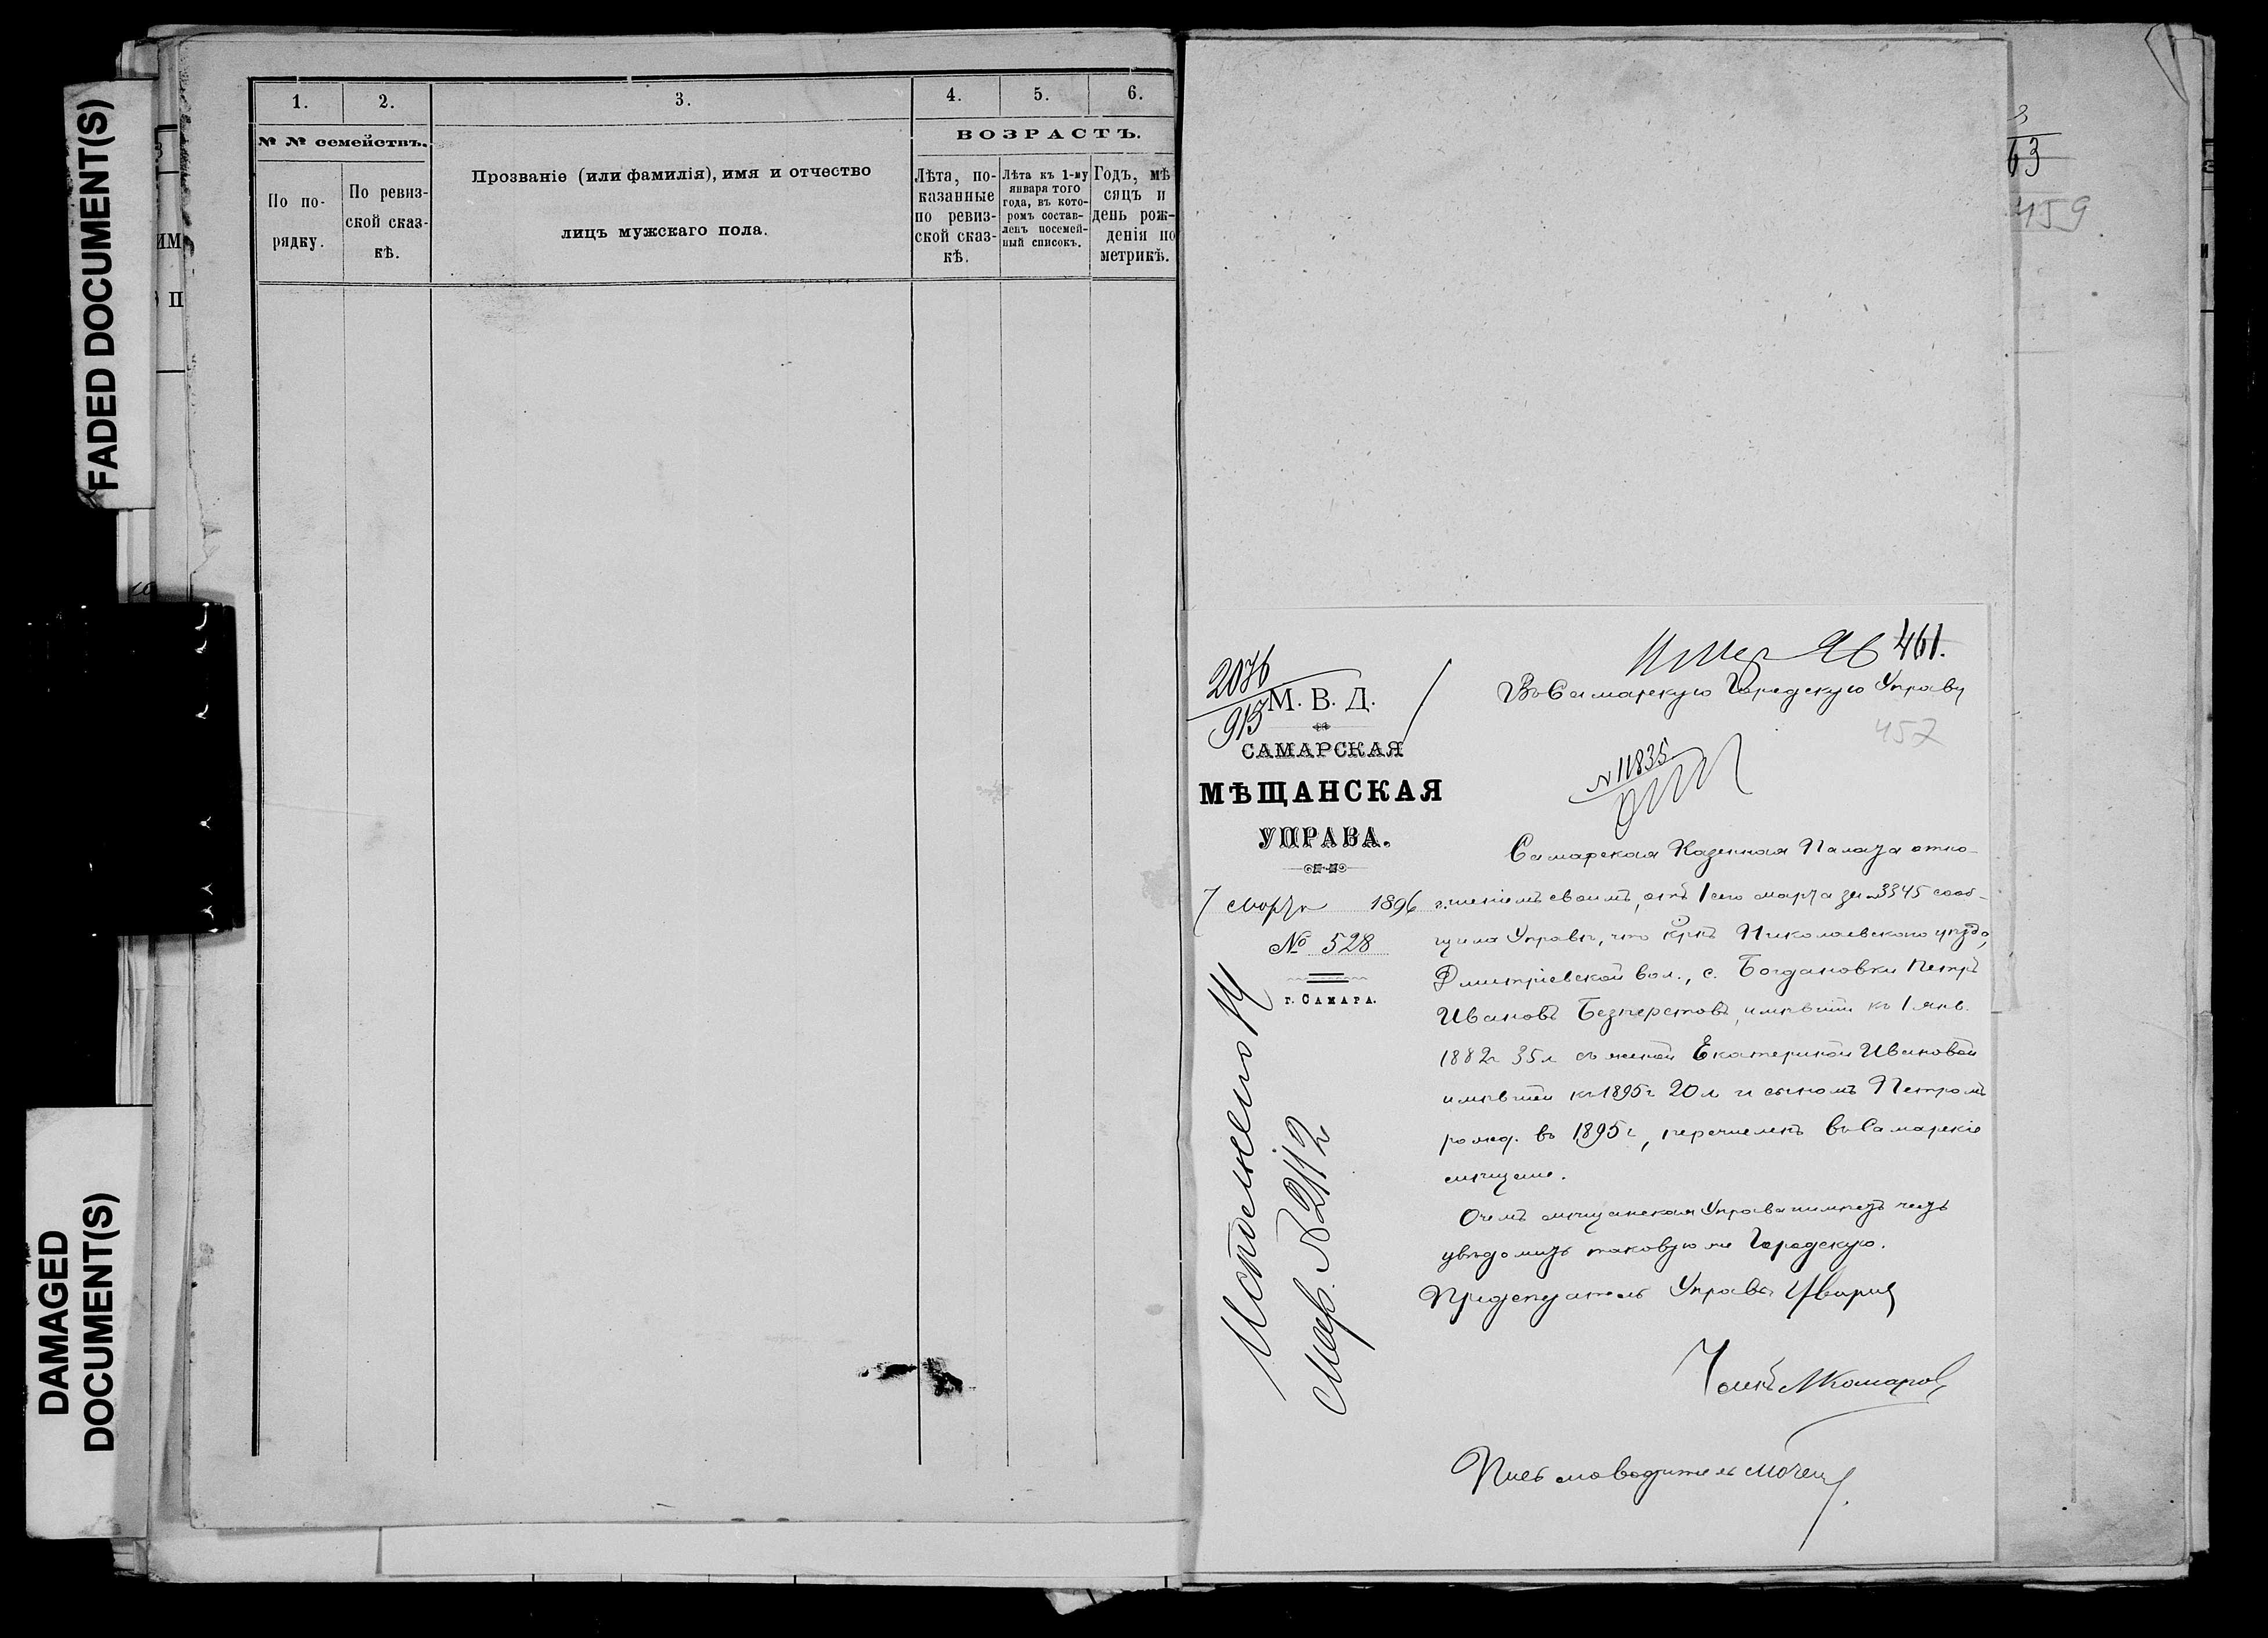 FADED DOCUMENT(S)
DAMAGED
DOCUMENT(S)
1. 2. 3. 4. 5. 6.
№ № семействъ.
По по-
рядку.
По ревиз-
ской сказ-
кѣ.
Прозваніе (или фамилія), имя и отчество
лицъ мужскаго пола.
ВОЗРАСТЪ.
Лѣта, по-
казанные
по ревиз-
ской сказ-
кѣ.
Лѣта къ 1-му
января того
года, въ кото-
ромъ состав-
ленъ посемей-
ный списокъ.
Годъ, мѣ
сяцъ и
день рож-
денія по
метрикѣ.
63
459
461.
2076
913
М. В. Д.
САМАРСКАЯ
МѢЩАНСКАЯ
УПРАВА.
7 марта 1896 г.
№ 528
г. САМАРА.
Въ Самарскую Городскую Управу
457
N 11835
Самарская Казенная Палата отно-
шеніемъ своимъ, отъ 1 сего марта за № 3345 сооб-
щила Управѣ, что крнъ Николаевскаго уѣзда,
Дмитріевской вол., с. Богдановки Петръ
Ивановъ Безперстовъ, имѣвшій къ 1 янв.
1882г 35л съ женой Екатериной Ивановой
имѣвшей къ 1895г 20л и сыномъ Петромъ
рожд. въ 1895г, перечисленъ въ Самарскіе
мѣщане.
О чемъ мѣщанская Управа имѣетъ честь
увѣдомить таковую же Городскую.
Предсѣдатель Управы
Членъ М Комаровъ
Письмоводитель
Исполнено
Мар. № 2112